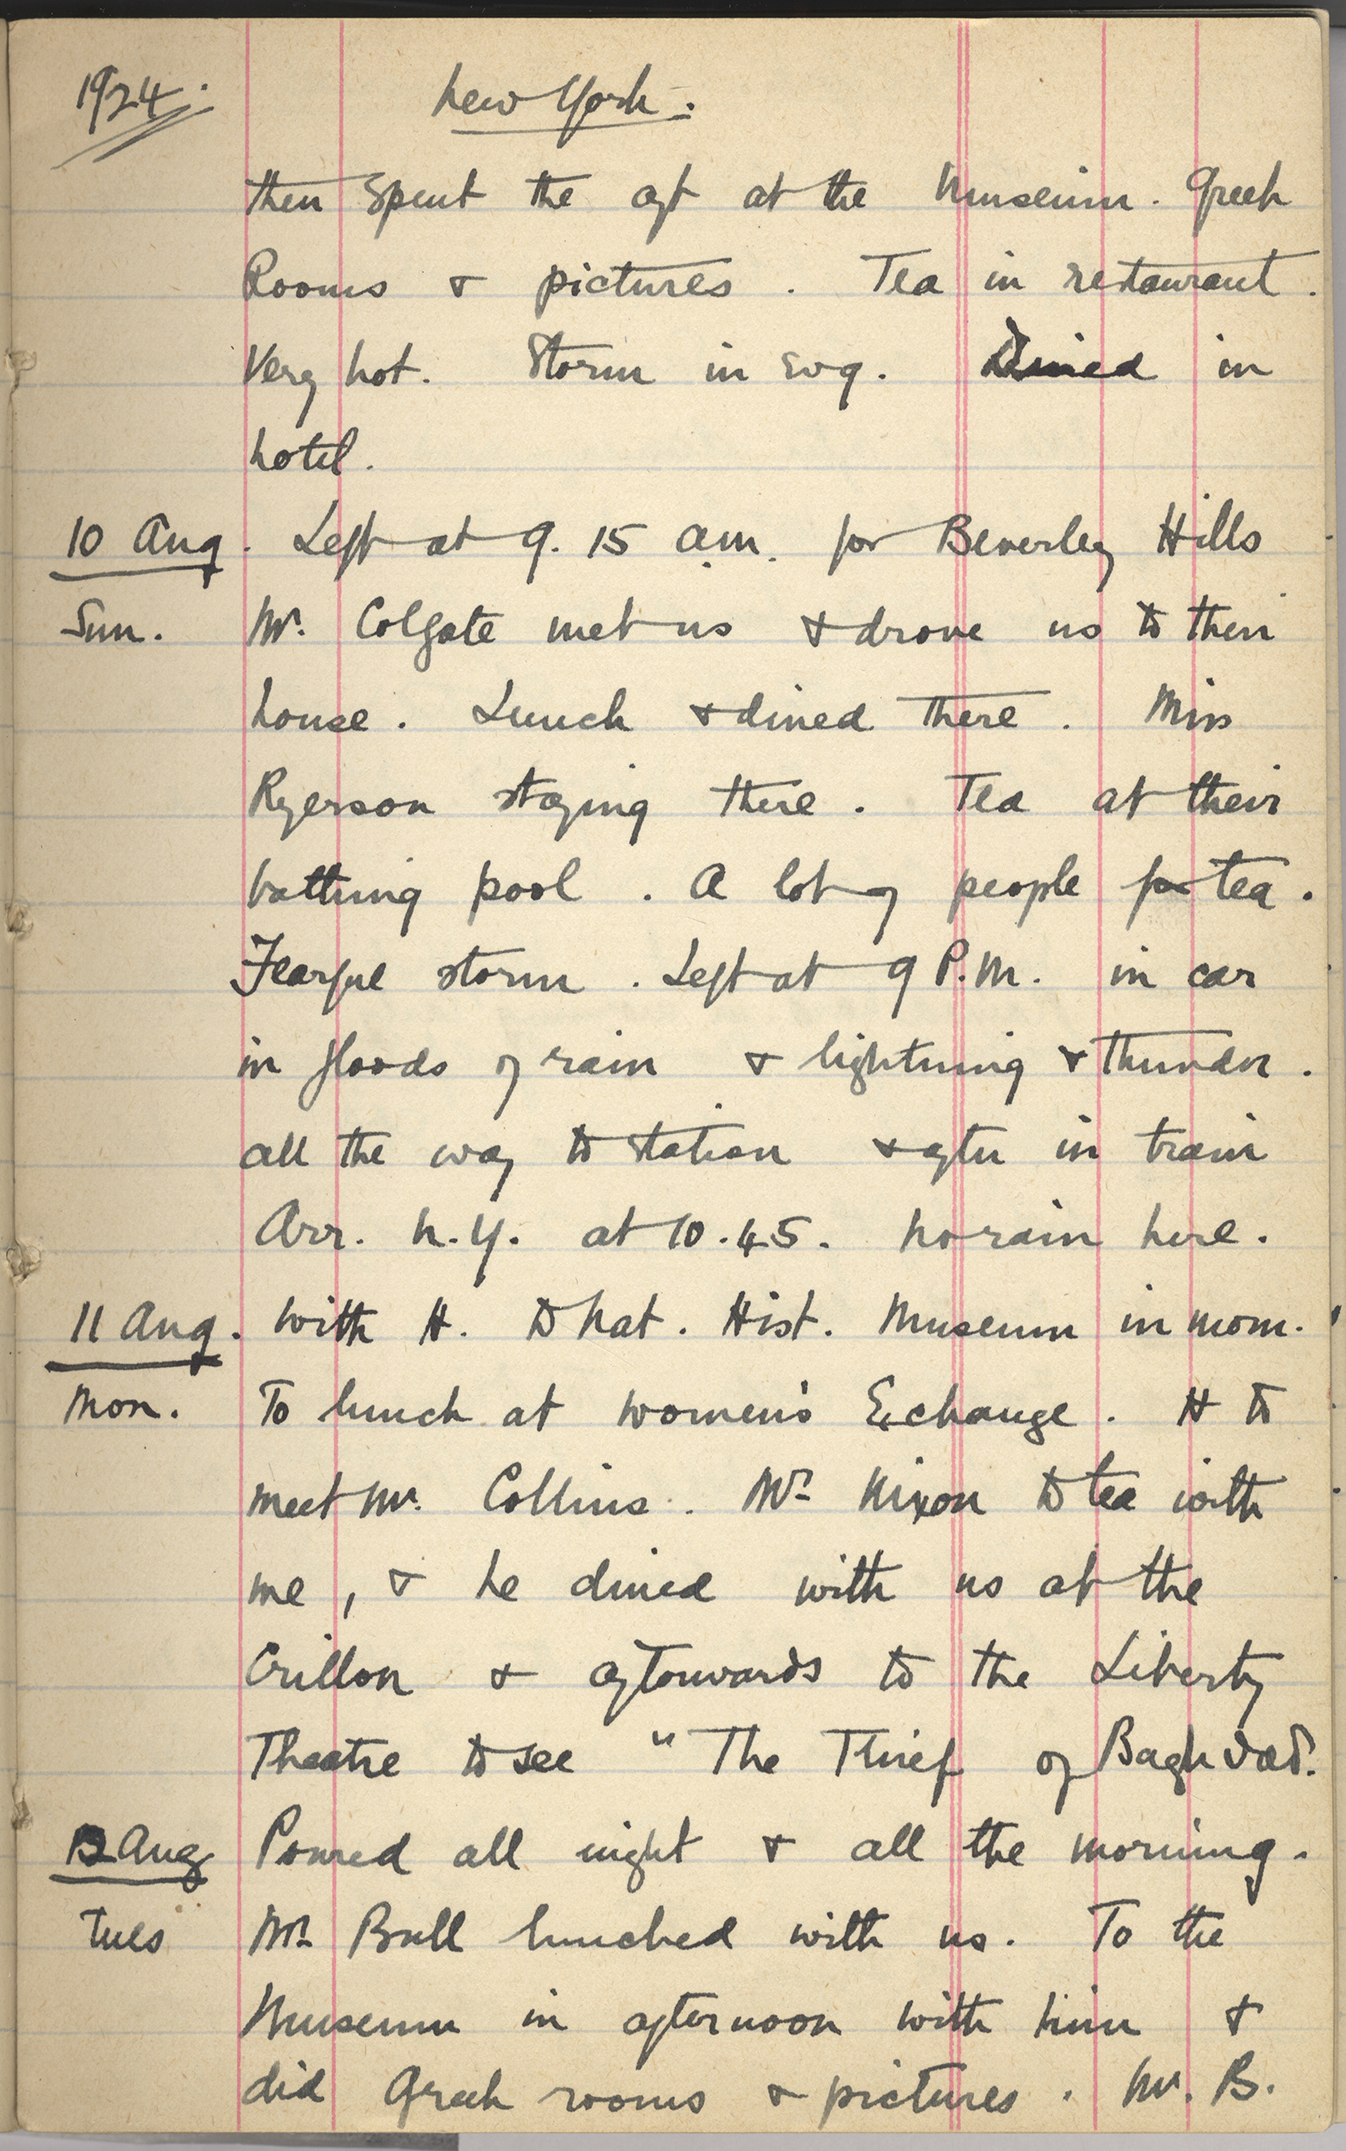 1924.
New York.
then spent the aft at the Museum. Greek
Rooms & pictures. Tea in restaurant.
Very hot. Storm in evg. Dined in
hotel.
10 Aug. Left at 9.15 a.m. for Beverley Hills
Sun. Mr. Colgate met us & drove us to their
house. Lunch & dined there. Miss
Ryerson staying there. Tea at their
bathing pool. A lot of people for tea.
Fearful storm. Left at 9 P.M. in car
in floods of rain & lightning & thunder.
all the way to station & after in train
Arr. N.Y. at 10.45. No rain here.
11 Aug. With H. to Nat. Hist. Museum in morn.
Mon. To lunch at Women's Exchange. H to
meet Mr. Collins. Mr. Nixon to tea with
me, & he dined with us at the
Crillon & afterwards to the Liberty
Theatre to see "The Thief of Baghdad.
12 Aug Poured all night & all the morning.
Tues Mr. Bull lunched with us. To the
Museum in afternoon with him &
did Greek rooms & pictures. Mr. B.